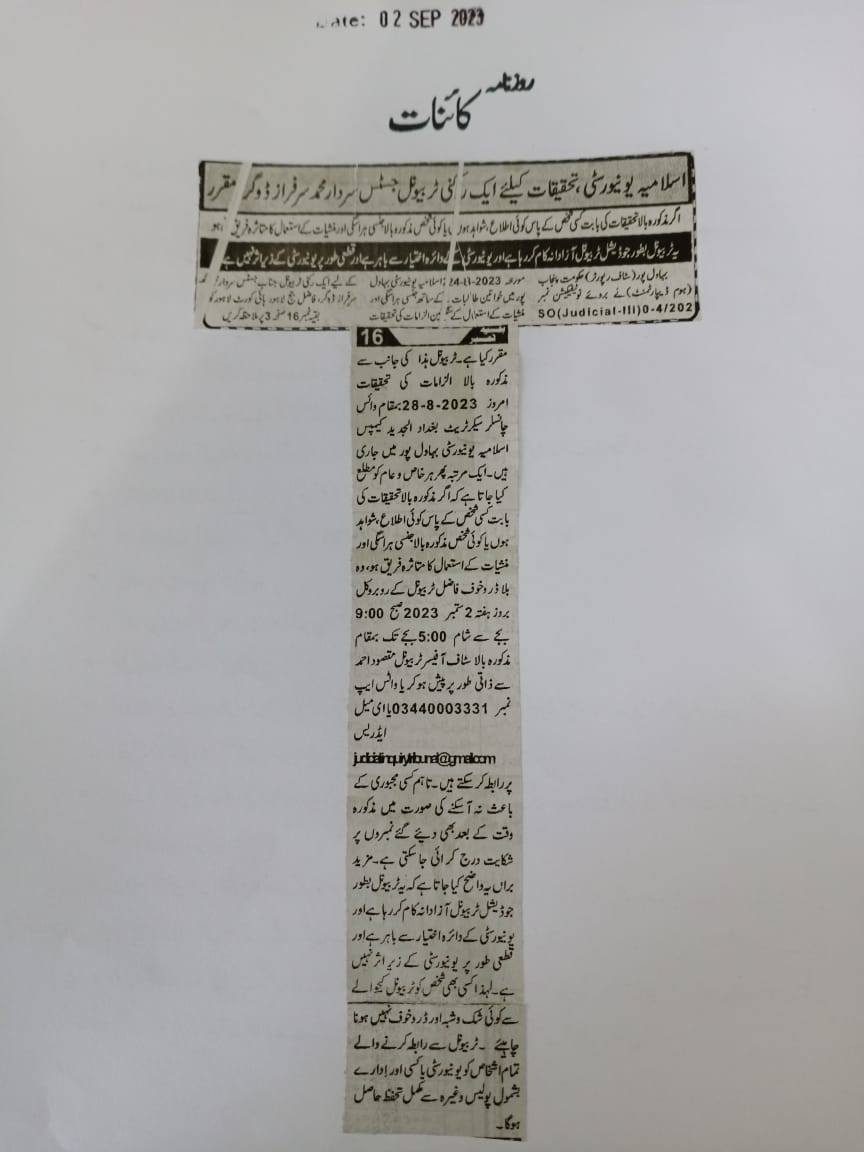 Date: 02 SEP 2023
روزنامہ
کائنات
اسلامیہ یونیورسٹی، تحقیقات کیلئے ایک رکنی ٹربیونل جسٹس سردار محمد سرفراز ڈوگر مقرر
اگر مذکورہ بالا تحقیقات کی بابت کسی شخص کے پاس کوئی اطلاع، شواہد ہوں یا کوئی شخص مذکورہ بالا جنسی ہراسگی اور منشیات کے استعمال کا متاثرہ فریق ہو
یہ ٹربیونل بطور جوڈیشل ٹربیونل آزادانہ کام کر رہا ہے اور یونیورسٹی کے دائرہ اختیار سے باہر ہے اور قطعی طور پر یونیورسٹی کے زیر اثر نہیں ہے
بہاول پور (سٹاف رپورٹر) حکومت پنجاب
(ہوم ڈیپارٹمنٹ) نے بروئے نوٹیفکیشن نمبر
SO(Judicial-III)0-4/202
مورخہ 24-II-2023 اسلامیہ یونیورسٹی بہاول
پور میں خواتین طالبات کے ساتھ جنسی ہراسگی اور
منشیات کے استعمال کے سنگین الزامات کی تحقیقات
کے لیے ایک رکنی ٹربیونل جناب جسٹس سردار محمد
سرفراز ڈوگر، فاضل جج لاہور ہائی کورٹ لاہور کو
بقیہ نمبر 16 صفحہ 3 پر ملاحظہ کریں
بقیہ نمبر 16
مقرر کیا ہے۔ ٹربیونل ہذا کی جانب سے
مذکورہ بالا الزامات کی تحقیقات
امروز 28-8-2023 بمقام وائس
چانسلر سیکرٹریٹ بغداد الجدید کیمپس
اسلامیہ یونیورسٹی بہاول پور میں جاری
ہیں۔ ایک مرتبہ پھر ہر خاص و عام کو مطلع
کیا جاتا ہے کہ اگر مذکورہ بالا تحقیقات کی
بابت کسی شخص کے پاس کوئی اطلاع، شواہد
ہوں یا کوئی شخص مذکورہ بالا جنسی ہراسگی اور
منشیات کے استعمال کا متاثرہ فریق ہو، وہ
بلا ڈر و خوف فاضل ٹربیونل کے روبرو کل
بروز ہفتہ 2 ستمبر 2023 صبح 9:00
بجے سے شام 5:00 بجے تک بمقام
مذکورہ بالا سٹاف آفیسر ٹربیونل مقصود احمد
سے ذاتی طور پر پیش ہو کر یا واٹس ایپ
نمبر 03440003331 یا ای میل
ایڈریس
judicialinquirytribunal@gmail.com
پر رابطہ کر سکتے ہیں۔ تاہم کسی مجبوری کے
باعث نہ آ سکنے کی صورت میں مذکورہ
وقت کے بعد بھی دیئے گئے نمبروں پر
شکایت درج کرائی جا سکتی ہے۔ مزید
براں یہ واضح کیا جاتا ہے کہ یہ ٹربیونل بطور
جوڈیشل ٹربیونل آزادانہ کام کر رہا ہے اور
یونیورسٹی کے دائرہ اختیار سے باہر ہے اور
قطعی طور پر یونیورسٹی کے زیر اثر نہیں
ہے۔ لہذا کسی بھی شخص کو ٹربیونل کیحوالے
سے کوئی شک و شبہ اور ڈر و خوف نہیں ہونا
چاہیئے۔ ٹربیونل سے رابطہ کرنے والے
تمام اشخاص کو یونیورسٹی یا کسی اور ادارے
بشمول پولیس وغیرہ سے مکمل تحفظ حاصل
ہوگا۔